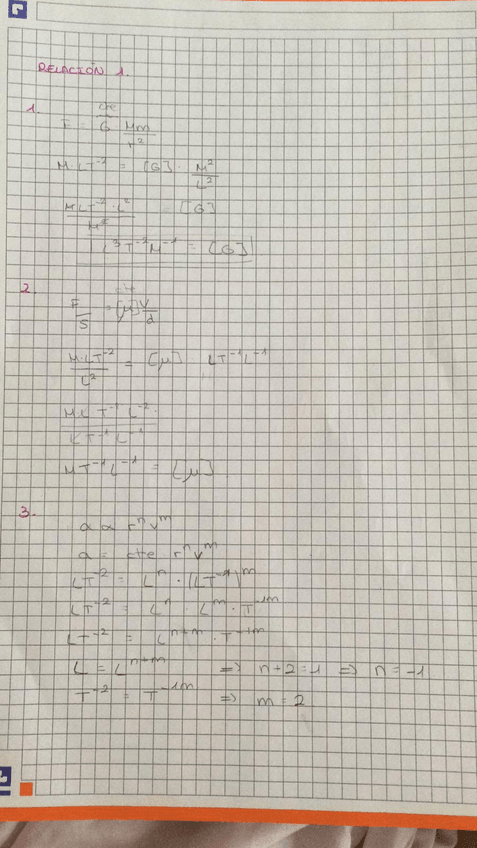 RELACIÓN 1.
1.
cte
F = G Mm/r²
M·LT⁻² = [G] · M²/L²
MLT⁻²·L²/M² = [G]
L³T⁻²M⁻¹ = [G]
2.
cte
F/S = [μ] v/d
M·LT⁻²/L² = [μ] LT⁻¹L⁻¹
MLT⁻²L⁻²/LT⁻¹L⁻¹
MT⁻¹L⁻¹ = [μ]
3.
a ∝ rⁿvᵐ
a = cte rⁿvᵐ
LT⁻² = Lⁿ · (LT⁻¹)ᵐ
LT⁻² = Lⁿ · Lᵐ · T⁻¹ᵐ
LT⁻² = Lⁿ⁺ᵐ · T⁻¹ᵐ
L = Lⁿ⁺ᵐ ⇒ n+2=1 ⇒ n=-1
T⁻² = T⁻¹ᵐ ⇒ m=2